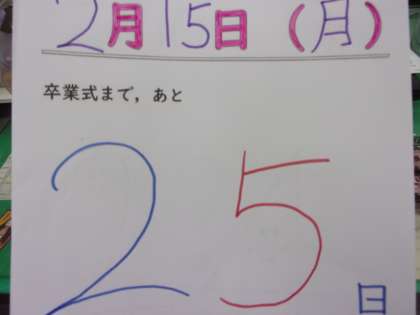 2月15日（月）
卒業式まで，あと
25日